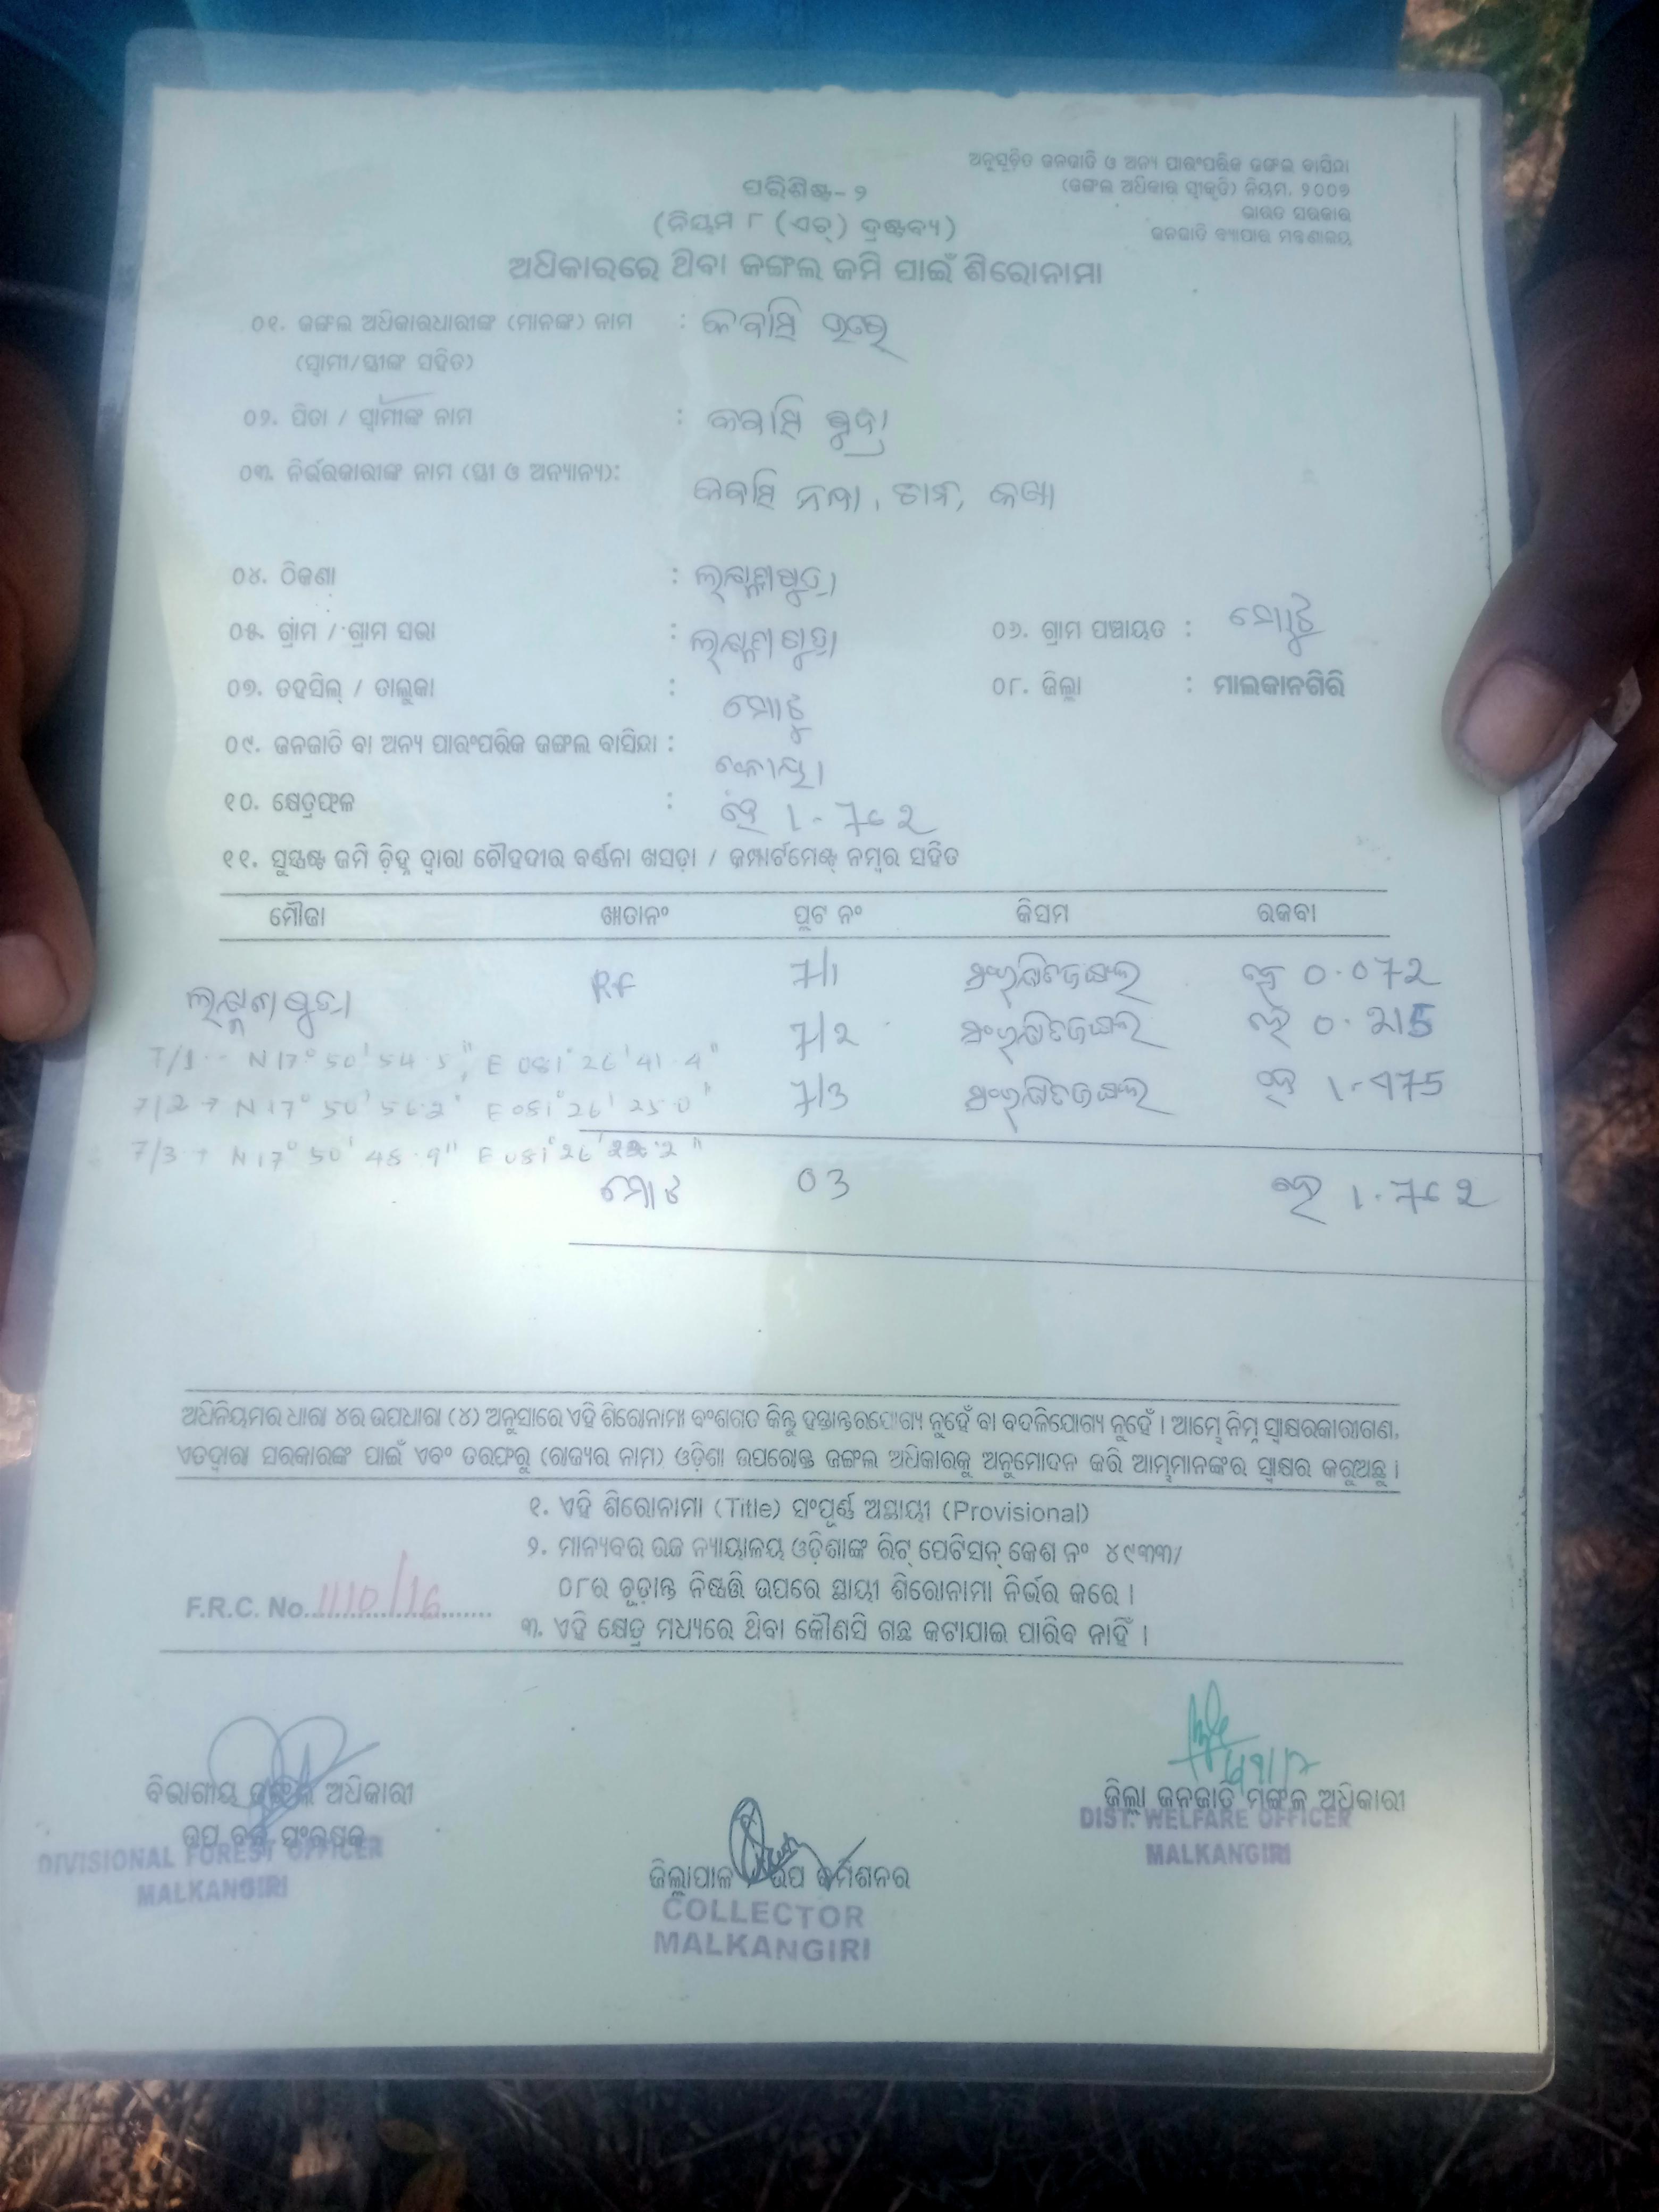 ଅନୁସୂଚିତ ଜନଜାତି ଓ ଅନ୍ୟ ପାରଂପରିକ ଜଙ୍ଗଲ ବାସିନ୍ଦା
(ଜଙ୍ଗଲ ଅଧିକାର ସ୍ୱୀକୃତି) ନିୟମ, ୨୦୦୭
ଭାରତ ସରକାର
ଜନଜାତି ବ୍ୟାପାର ମନ୍ତ୍ରଣାଳୟ
ପରିଶିଷ୍ଟ-୨
(ନିୟମ ୮ (ଏଚ୍) ଦ୍ରଷ୍ଟବ୍ୟ)
ଅଧିକାରରେ ଥିବା ଜଙ୍ଗଲ ଜମି ପାଇଁ ଶିରୋନାମା
୦୧. ଜଙ୍ଗଲ ଅଧିକାରଧାରୀଙ୍କ (ମାନଙ୍କ) ନାମ : କବାସି
(ସ୍ୱାମୀ/ସ୍ତ୍ରୀଙ୍କ ସହିତ)
୦୨. ପିତା / ସ୍ୱାମୀଙ୍କ ନାମ : କବାସି
୦୩. ନିର୍ଭରକାରୀଙ୍କ ନାମ (ସ୍ତ୍ରୀ ଓ ଅନ୍ୟାନ୍ୟ): କବାସି
୦୪. ଠିକଣା :
୦୫. ଗ୍ରାମ / ଗ୍ରାମ ସଭା : ୦୬. ଗ୍ରାମ ପଞ୍ଚାୟତ : ମୋଟୁ
୦୭. ତହସିଲ୍ / ତାଲୁକା : ମୋଟୁ ୦୮. ଜିଲ୍ଲା : ମାଲକାନଗିରି
୦୯. ଜନଜାତି ବା ଅନ୍ୟ ପାରଂପରିକ ଜଙ୍ଗଲ ବାସିନ୍ଦା : କୋୟା
୧୦. କ୍ଷେତ୍ରଫଳ : ହେ 1.762
୧୧. ସୁସ୍ପଷ୍ଟ ଜମି ଚିହ୍ନ ଦ୍ୱାରା ଚୌହଦୀର ବର୍ଣ୍ଣନା ଖସଡ଼ା / କମ୍ପାର୍ଟମେଣ୍ଟ ନମ୍ବର ସହିତ
ମୌଜା ଖାତାନଂ ପ୍ଲଟ ନଂ କିସମ ରକବା
RF 7/1 ସଂରକ୍ଷିତଜଙ୍ଗଲ ହେ 0.072
7/2 ସଂରକ୍ଷିତଜଙ୍ଗଲ ହେ 0.215
7/1 - N 17° 50' 54.5" E 081° 26' 41.4"
7/3 ସଂରକ୍ଷିତଜଙ୍ଗଲ ହେ 1.475
7/2 → N 17° 50' 56.2" E 081° 26' 25.0"
7/3 → N 17° 50' 48.9" E 081° 26'
ମୋଟ 03 ହେ 1.762
ଅଧିନିୟମର ଧାରା ୪ର ଉପଧାରା (୪) ଅନୁସାରେ ଏହି ଶିରୋନାମା ବଂଶଗତ କିନ୍ତୁ ହସ୍ତାନ୍ତରଯୋଗ୍ୟ ନୁହେଁ ବା ବଦଳିଯୋଗ୍ୟ ନୁହେଁ । ଆମ୍ଭେ ନିମ୍ନ ସ୍ୱାକ୍ଷରକାରୀଗଣ,
ଏତଦ୍ୱାରା ସରକାରଙ୍କ ପାଇଁ ଏବଂ ତରଫରୁ (ରାଜ୍ୟର ନାମ) ଓଡ଼ିଶା ଉପରୋକ୍ତ ଜଙ୍ଗଲ ଅଧିକାରକୁ ଅନୁମୋଦନ କରି ଆମ୍ଭମାନଙ୍କର ସ୍ୱାକ୍ଷର କରୁଅଛୁ ।
୧. ଏହି ଶିରୋନାମା (Title) ସଂପୂର୍ଣ୍ଣ ଅସ୍ଥାୟୀ (Provisional)
୨. ମାନ୍ୟବର ଉଚ୍ଚ ନ୍ୟାୟାଳୟ ଓଡ଼ିଶାଙ୍କ ରିଟ୍ ପେଟିସନ୍ କେଶ ନଂ ୪୯୩୩/
୦୮ର ଚୂଡ଼ାନ୍ତ ନିଷ୍ପତ୍ତି ଉପରେ ସ୍ଥାୟୀ ଶିରୋନାମା ନିର୍ଭର କରେ ।
F.R.C. No. 1110/16
୩. ଏହି କ୍ଷେତ୍ର ମଧ୍ୟରେ ଥିବା କୌଣସି ଗଛ କଟାଯାଇ ପାରିବ ନାହିଁ ।
ବିଭାଗୀୟ ଜଙ୍ଗଲ ଅଧିକାରୀ
ଉପ ବନ ସଂରକ୍ଷକ
DIVISIONAL FOREST OFFICER
MALKANGIRI
ଜିଲ୍ଲାପାଳ / ଉପ କମିଶନର
COLLECTOR
MALKANGIRI
ଜିଲ୍ଲା ଜନଜାତି ମଙ୍ଗଳ ଅଧିକାରୀ
DIST. WELFARE OFFICER
MALKANGIRI